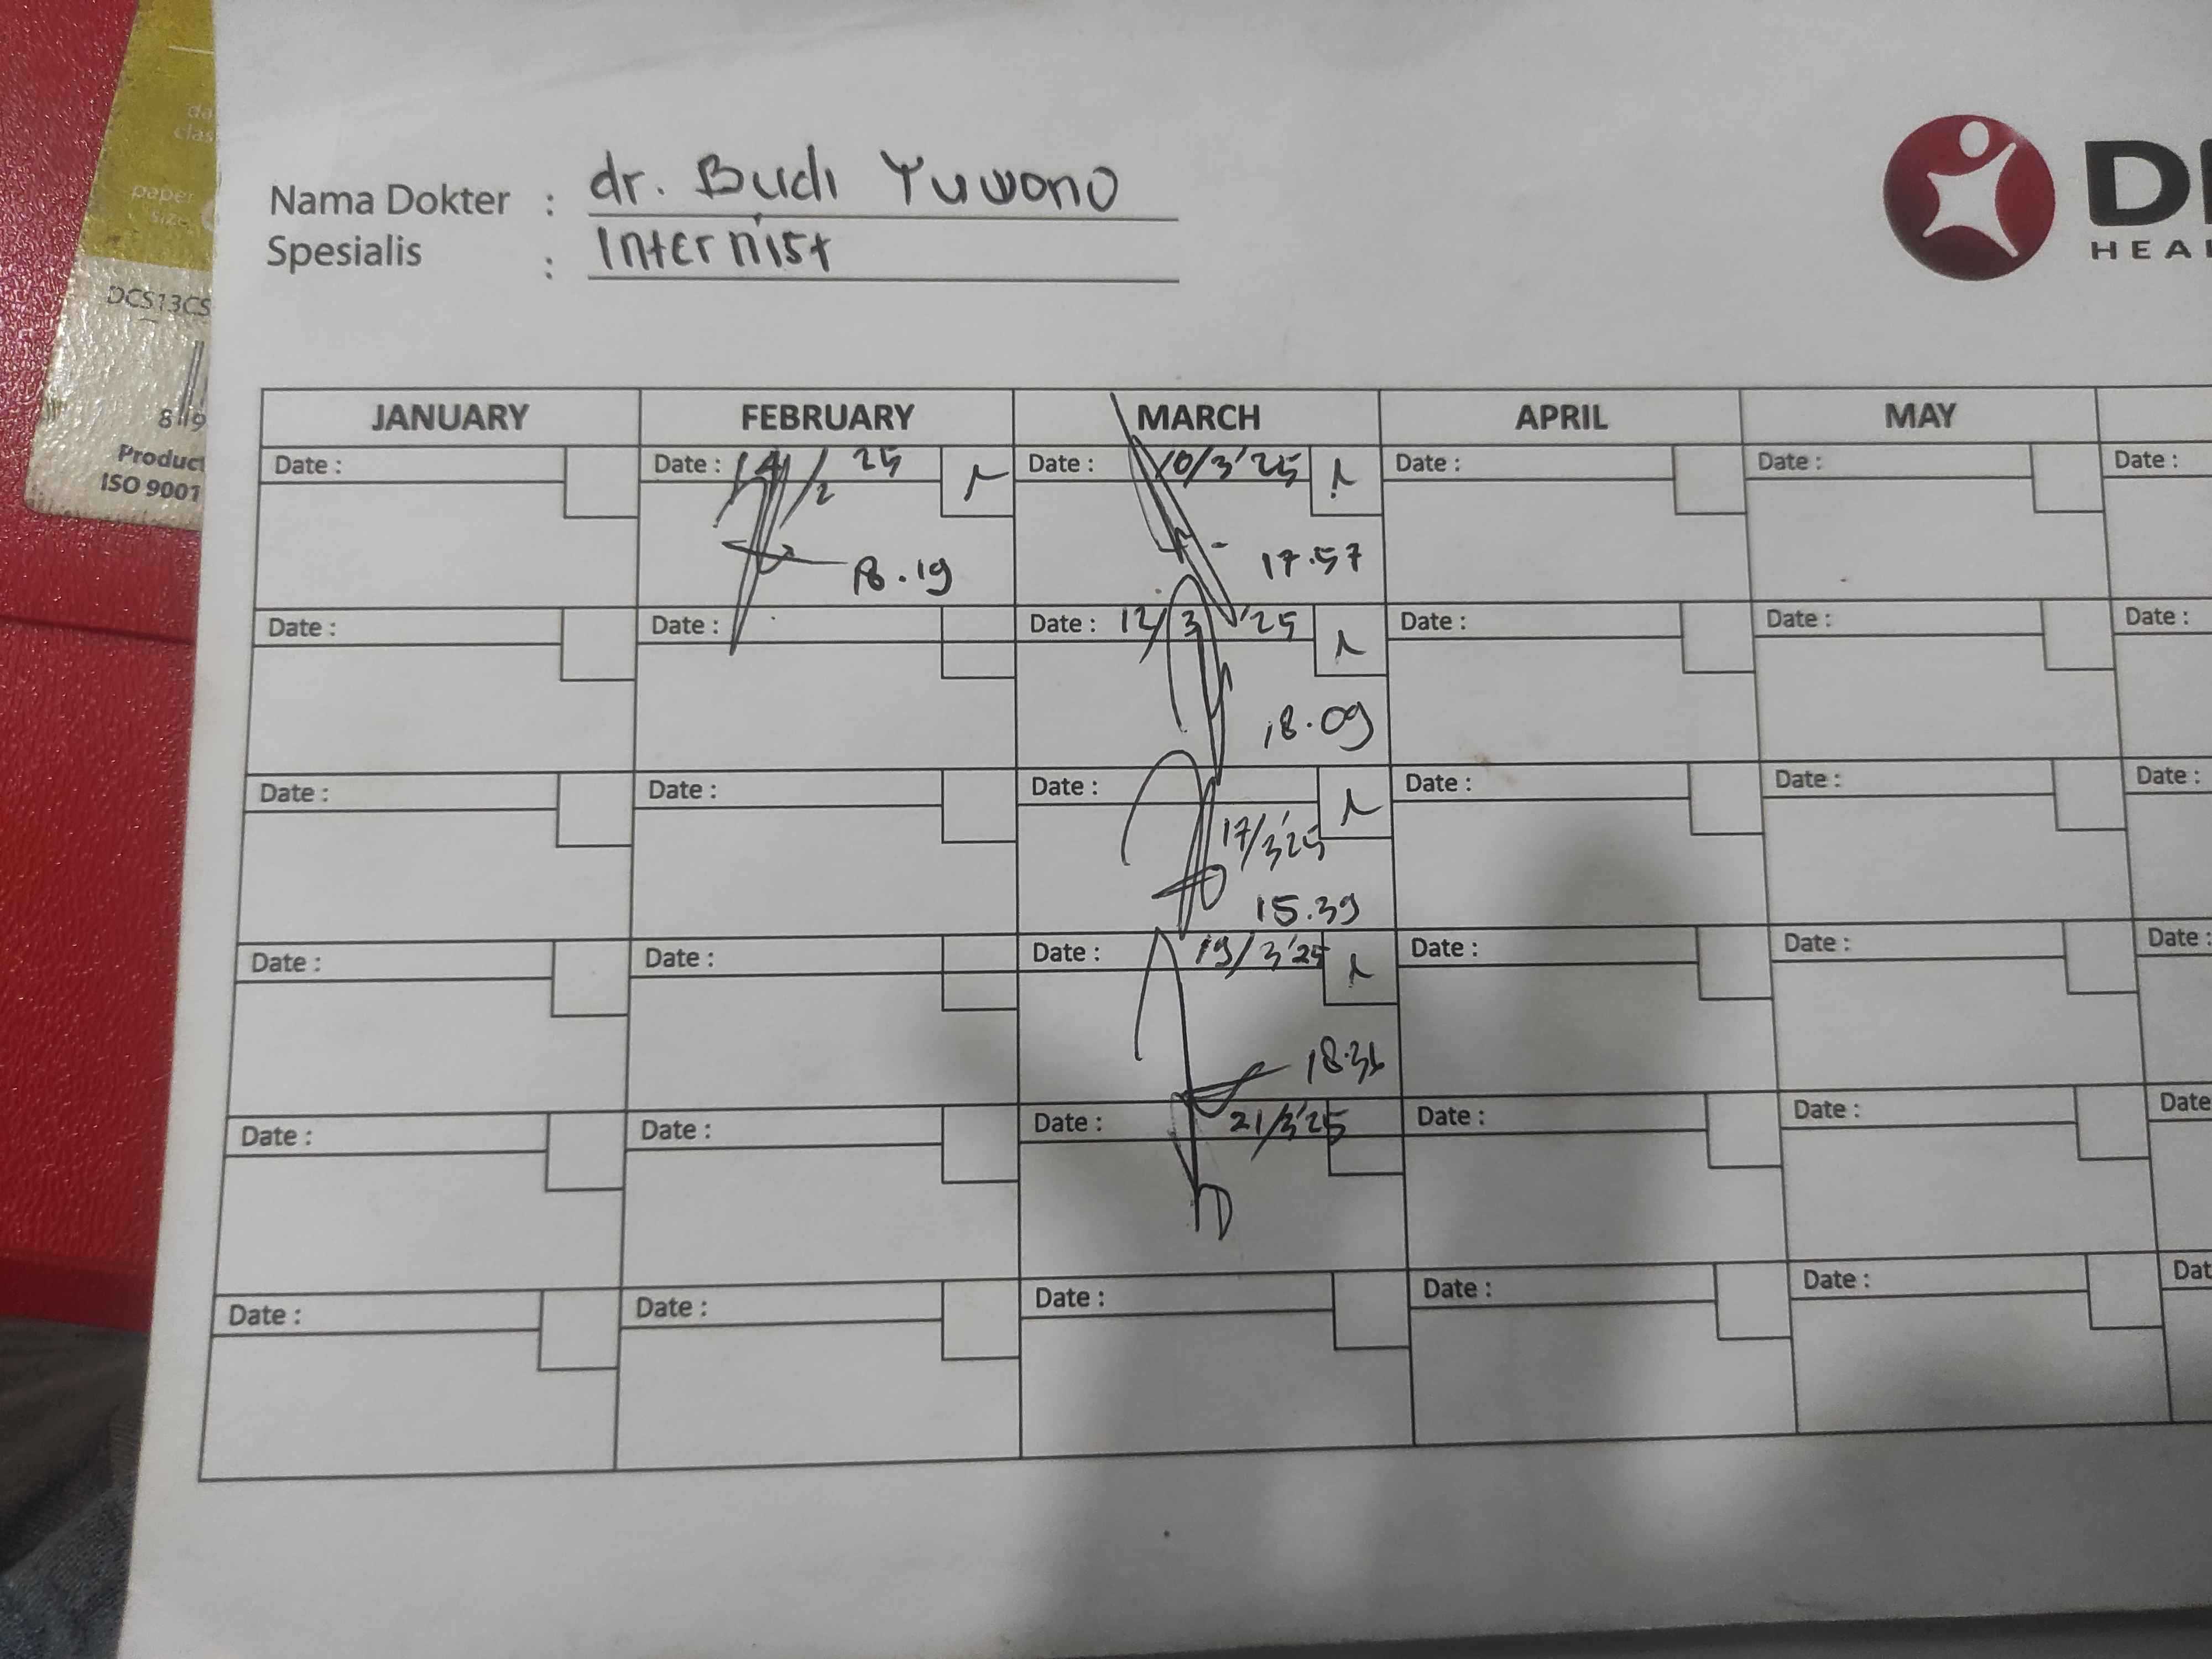 da
clas
paper
size
DCS13CS
Product
ISO 9001
Nama Dokter : dr. Budi Yuwono
Spesialis : Internist
HEA
JANUARY FEBRUARY MARCH APRIL MAY
Date : Date : 14/2 25 Date : 10/3'25 Date : Date : Date :
18.19 17.57
Date : Date : Date : 12/3'25 Date : Date : Date :
18.09
Date : Date : Date : Date : Date : Date :
17/3'25
15.39
Date : Date : Date : 19/3'25 Date : Date : Date :
18.36
Date : Date : Date : 21/3'25 Date : Date : Date
Date : Date : Date : Date : Date : Dat